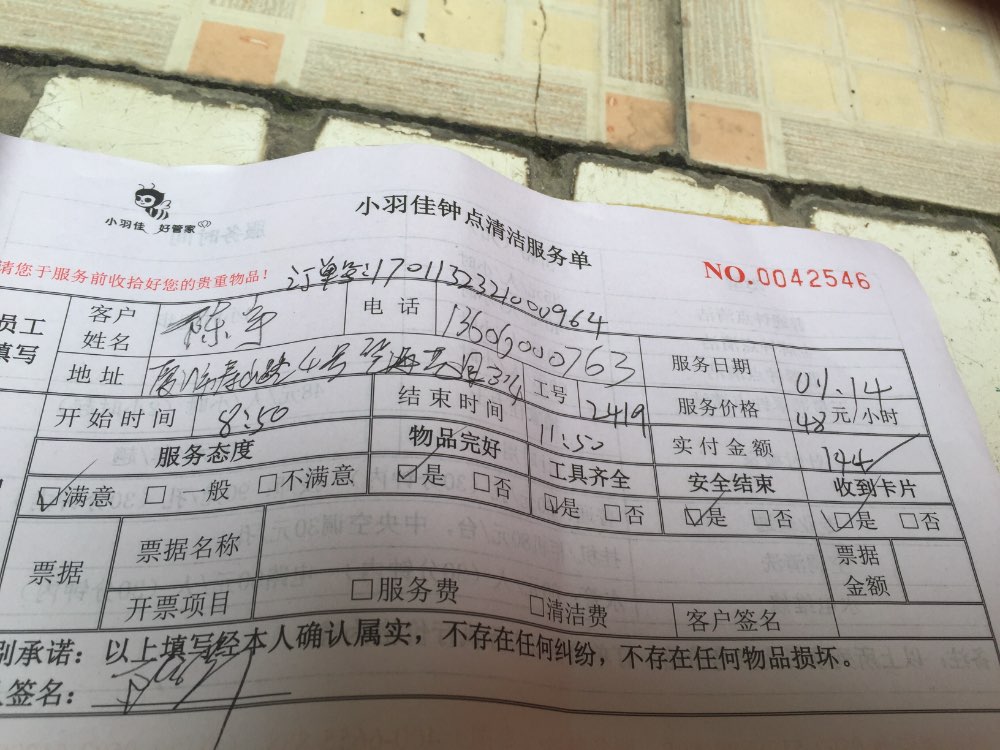 小羽佳 好管家
小羽佳钟点清洁服务单
NO.0042546
请您于服务前收拾好您的贵重物品！
订单号:17011323210000964
员工填写
客户姓名 陈
电话 13609000763
服务日期 01.14
地址
工号 2419
服务价格 48元/小时
开始时间 8:50
结束时间 11:50
实付金额 144
服务态度 物品完好 工具齐全 安全结束 收到卡片
☑满意 □一般 □不满意 ☑是 □否 ☑是 □否 ☑是 □否 ☑是 □否
票据 票据名称 票据金额
开票项目 □服务费 □清洁费 客户签名
别承诺：以上填写经本人确认属实，不存在任何纠纷，不存在任何物品损坏。
签名：